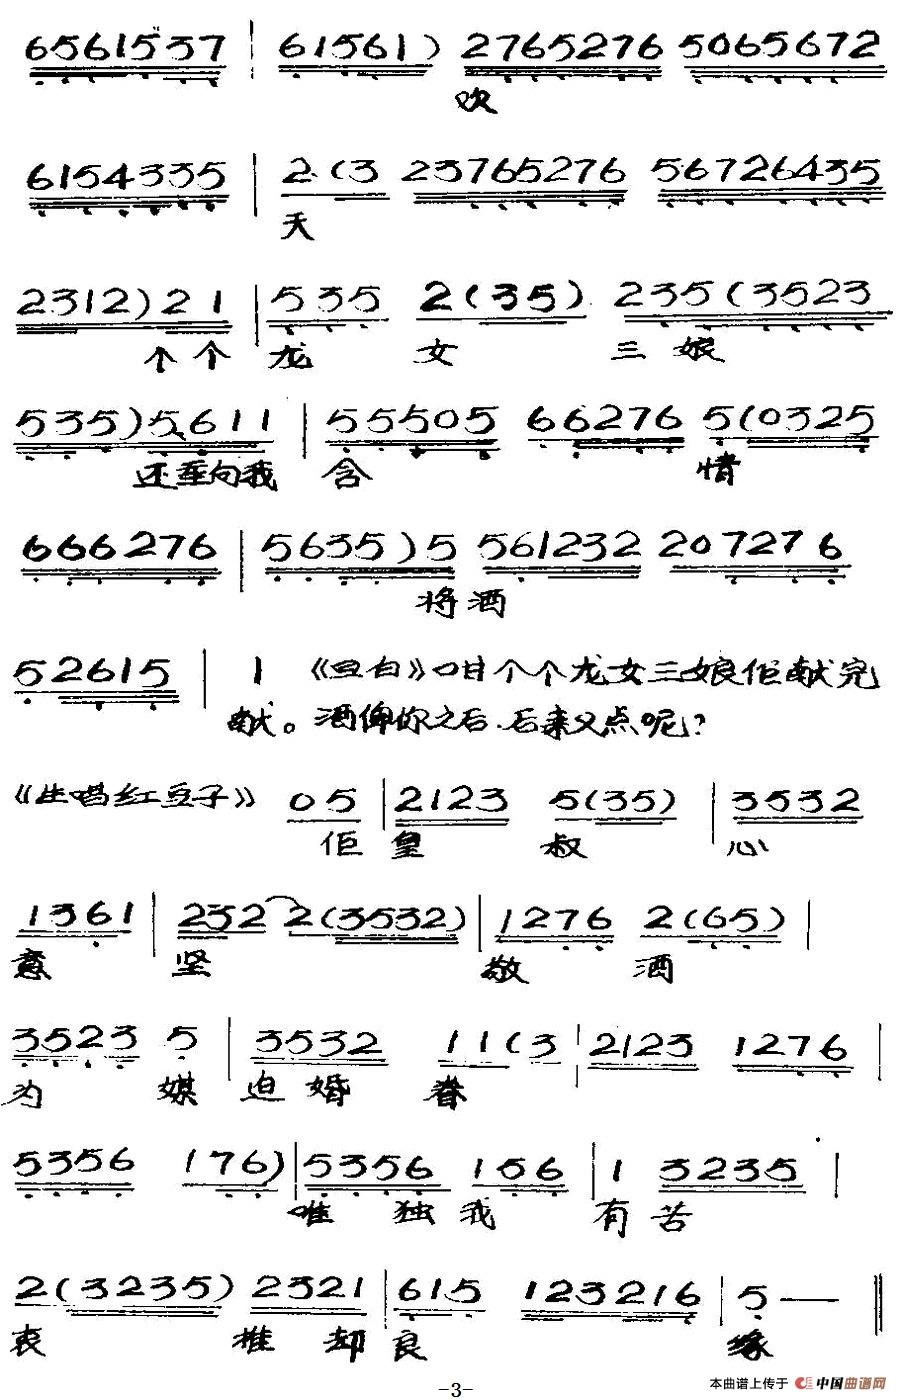 6561537 | 61561) 2765276 5065672
欢
6154335 | 2·(3 23765276 56726435
天
2312) 2 1 | 535 2(35) 235(3523
个个 龙 女 三娘
535)5611 | 55505 66276 5(0325
还垂向我 含 情
666276 | 5635)5 561232 207276
将酒
52615 | 1 《旦白》咁个个龙女三娘佢献完
献。酒俾你之后,后来又点呢?
《生唱红豆子》 05 | 2123 5(35) | 3532
佢皇 叔 心
1361 | 232 2(3532) | 1276 2(65) |
意 坚 敬 酒
3523 5 | 3532 11(3 | 2123 1276 |
为 媒 迫婚 眷
5356 176) | 5356 156 | 1 3235 |
唯 独 我 有 苦
2(3235) 2321 | 615 123216 | 5 ——
衷 推却 良 缘
本曲谱上传于 中国曲谱网
-3-